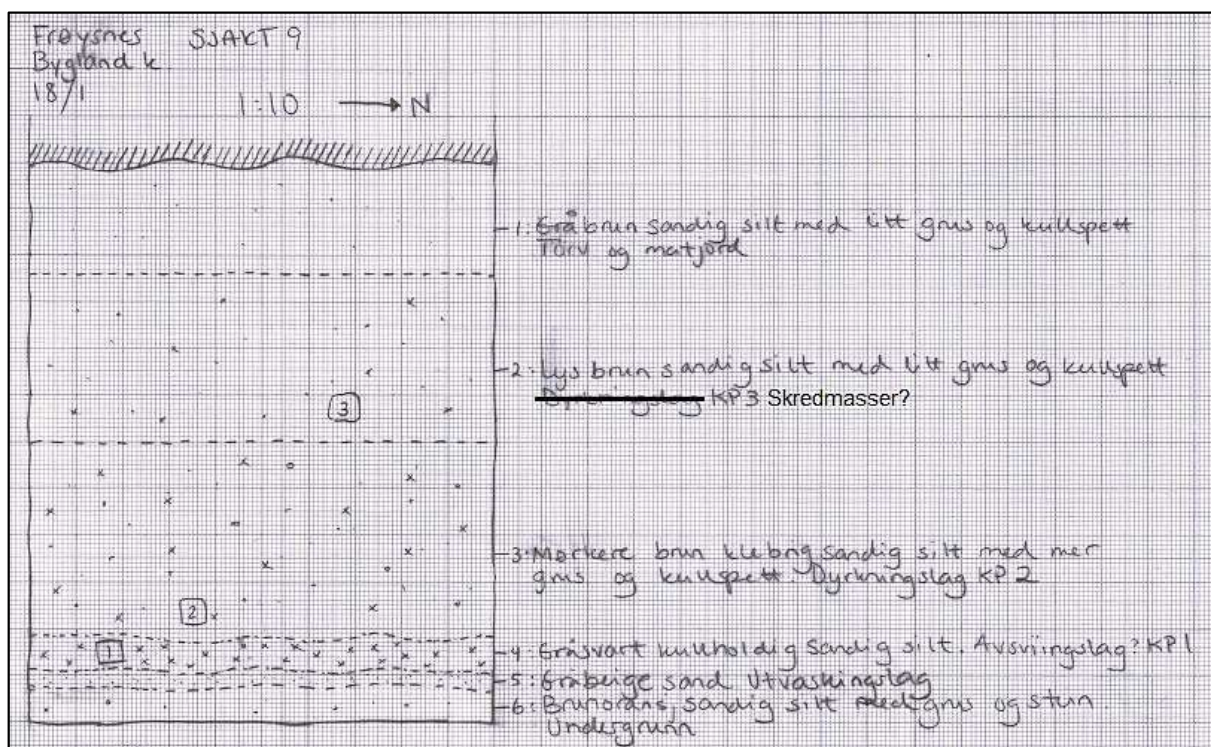 Frøysnes SJAKT 9
Bygland k.
18/1
1:10 → N
1: Gråbrun sandig silt med litt grus og kullspett
Torv og matjord
2: Lys brun sandig silt med litt grus og kullspett
Dyrkningslag KP3 Skredmasser?
3
3: Mørkere brun klebrig sandig silt med mer
grus og kullspett. Dyrkningslag KP 2
2
1
4: Gråsvart kullholdig sandig silt. Avsviingslag? KP1
5: Gråbeige sand Utvaskingslag
6: Brunorans, sandig silt med grus og stein.
Undergrunn